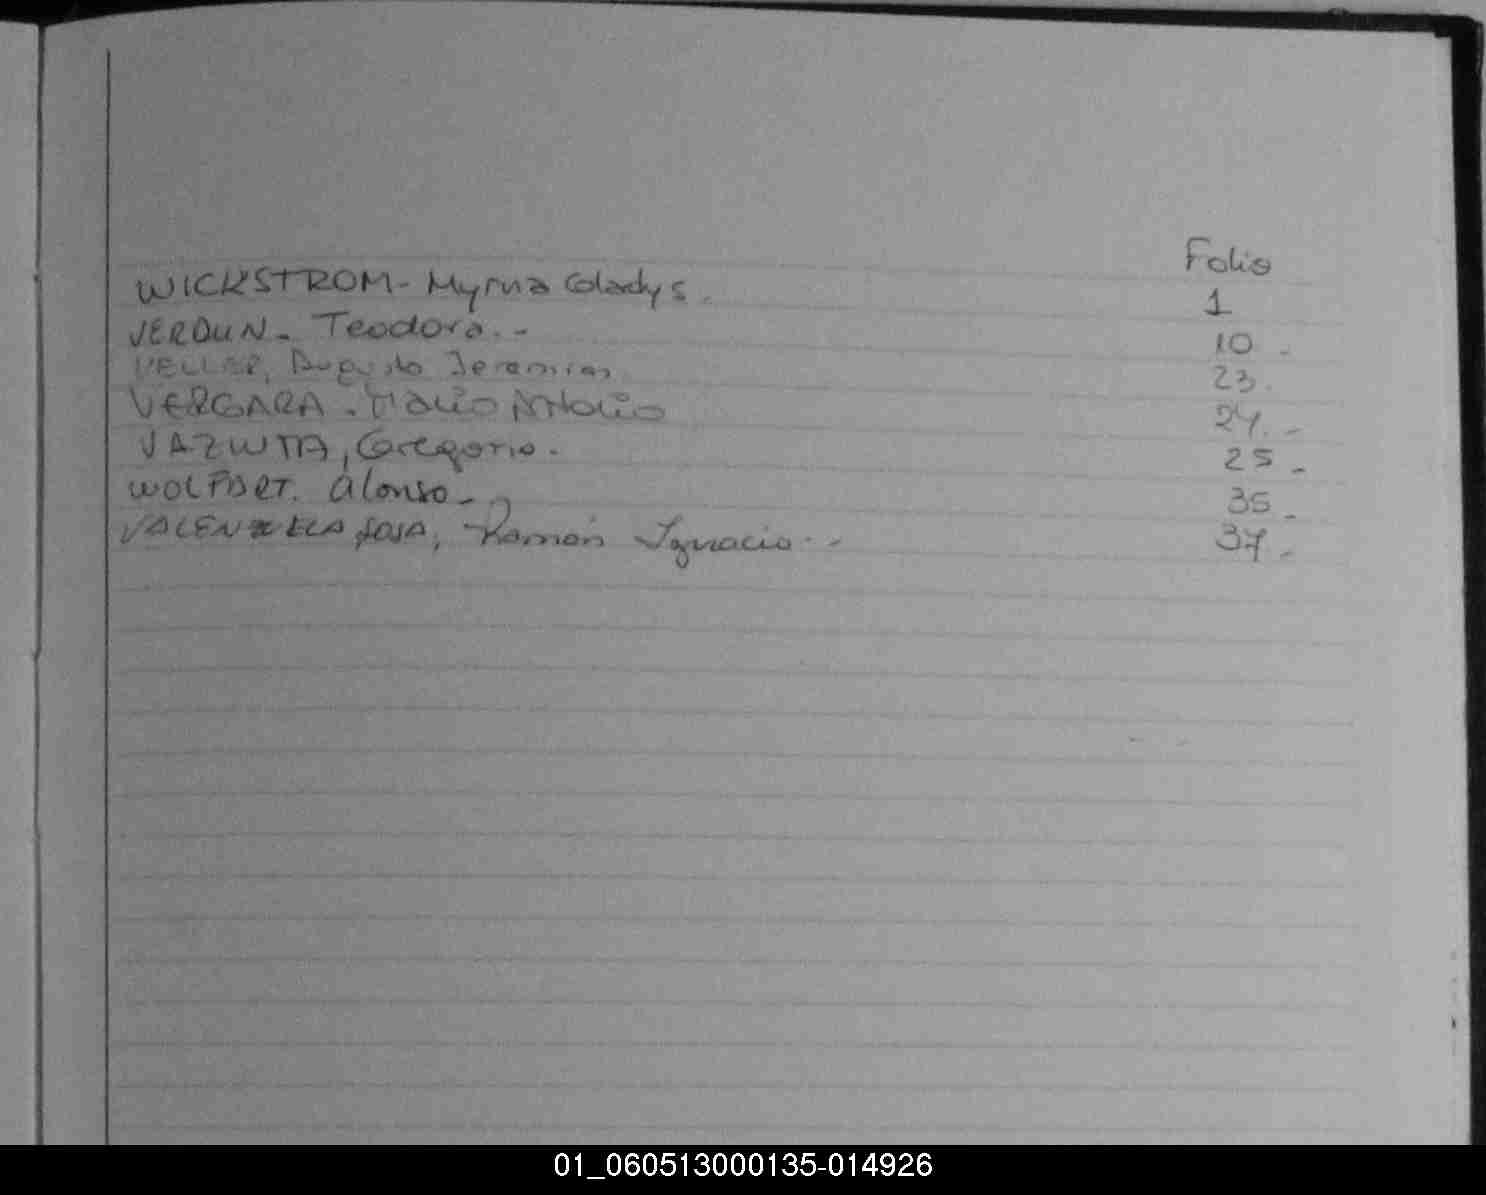 Folio
WICKSTROM- Myrna Gladys. 1
VERDUN- Teodora.- 10 -
VELLER, Augusto Jeremias 23.
VERGARA- Mario Antonio 24.-
VAZWTA, Gregorio. 25 -
WOLFART. Alonso- 35 -
VALENZUELA SOSA, Ramón Ignacio.- 37 -
01_060513000135-014926